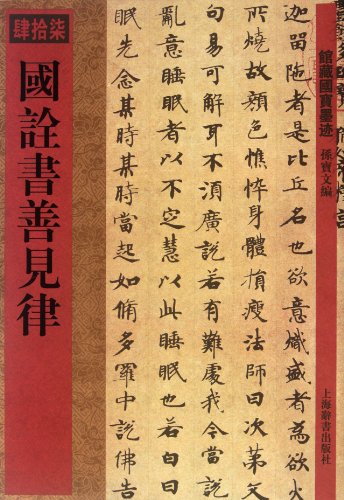 肆拾柒
國詮書善見律
館藏國寶墨迹
孫寶文編
迦留陁者是比丘名也欲意熾盛者爲欲火
所燒故顏色憔悴身體損瘦法師曰次第文
句易可解不須廣說若有難處我今當說
亂意睡眠者以不定慧以此睡眠若白日
眠先念某時某時當起如脩多羅中說佛告
上海辭書出版社